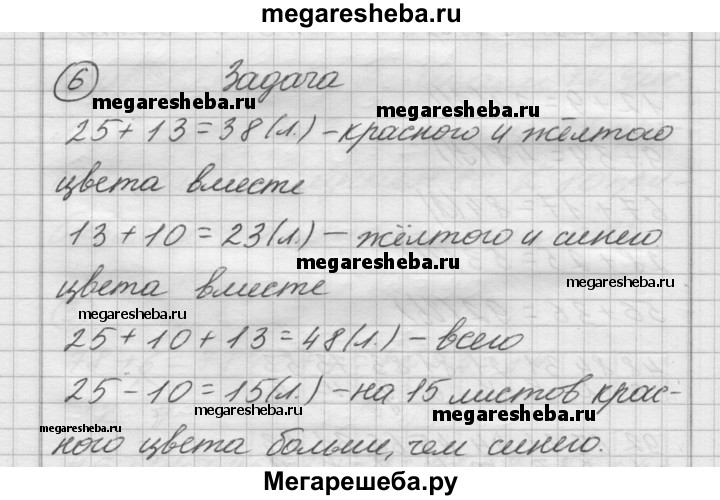 megaresheba.ru
6 Задача
megaresheba.ru
megaresheba.ru
25 + 13 = 38 (л.) – красного и жёлтого
цвета вместе
13 + 10 = 23 (л.) – жёлтого и синего
megaresheba.ru
megaresheba.ru
цвета вместе
megaresheba.ru
25 + 10 + 13 = 48 (л.) – всего
25 – 10 = 15 (л.) – на 15 листов крас-
megaresheba.ru
megaresheba.ru
megaresheba.ru
ного цвета больше, чем синего.
Мегарешеба.ру